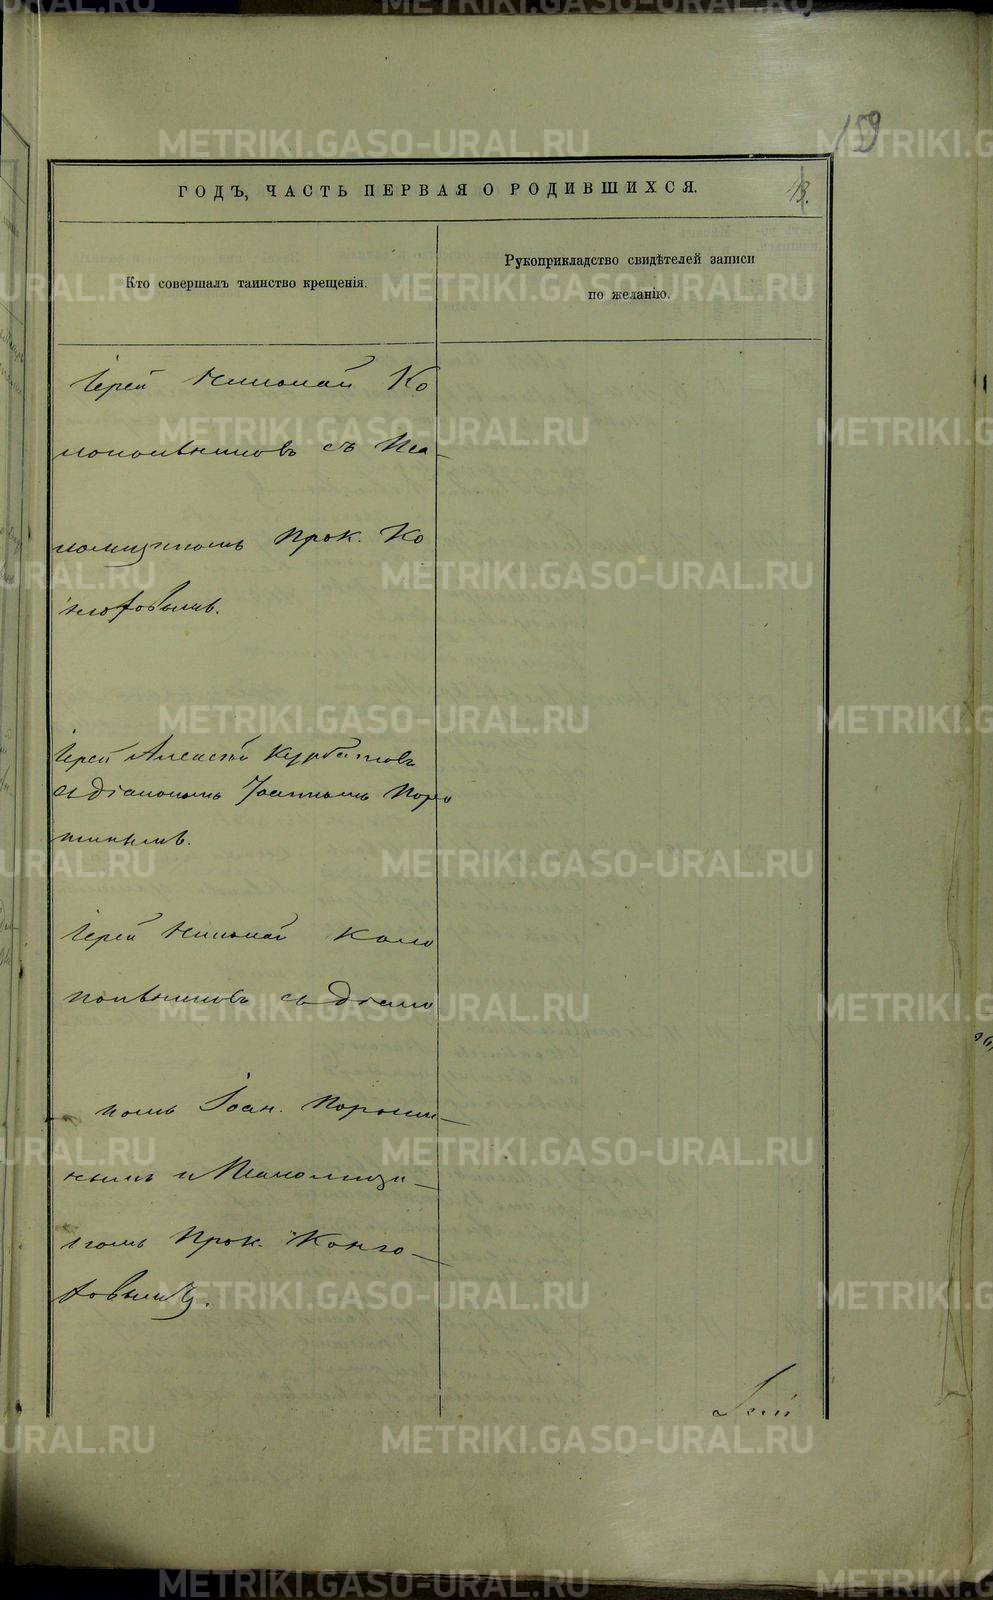 159
ГОДЪ, ЧАСТЬ ПЕРВАЯ О РОДИВШИХСЯ.
43.
Кто совершалъ таинство крещенія.
Рукоприкладство свидѣтелей записи
по желанію.
Іерей Николай Ко
съ Пса-
ломщикомъ Прок. Ко
Іерей Алексѣй Курбатовъ
съ Діакономъ Іоанномъ Поро
шинымъ.
Іерей Николай Коло
съ Діако
номъ Іоан. Пороши-
нымъ и Псаломщи-
комъ Прок. Конго-
METRIKI.GASO-URAL.RU